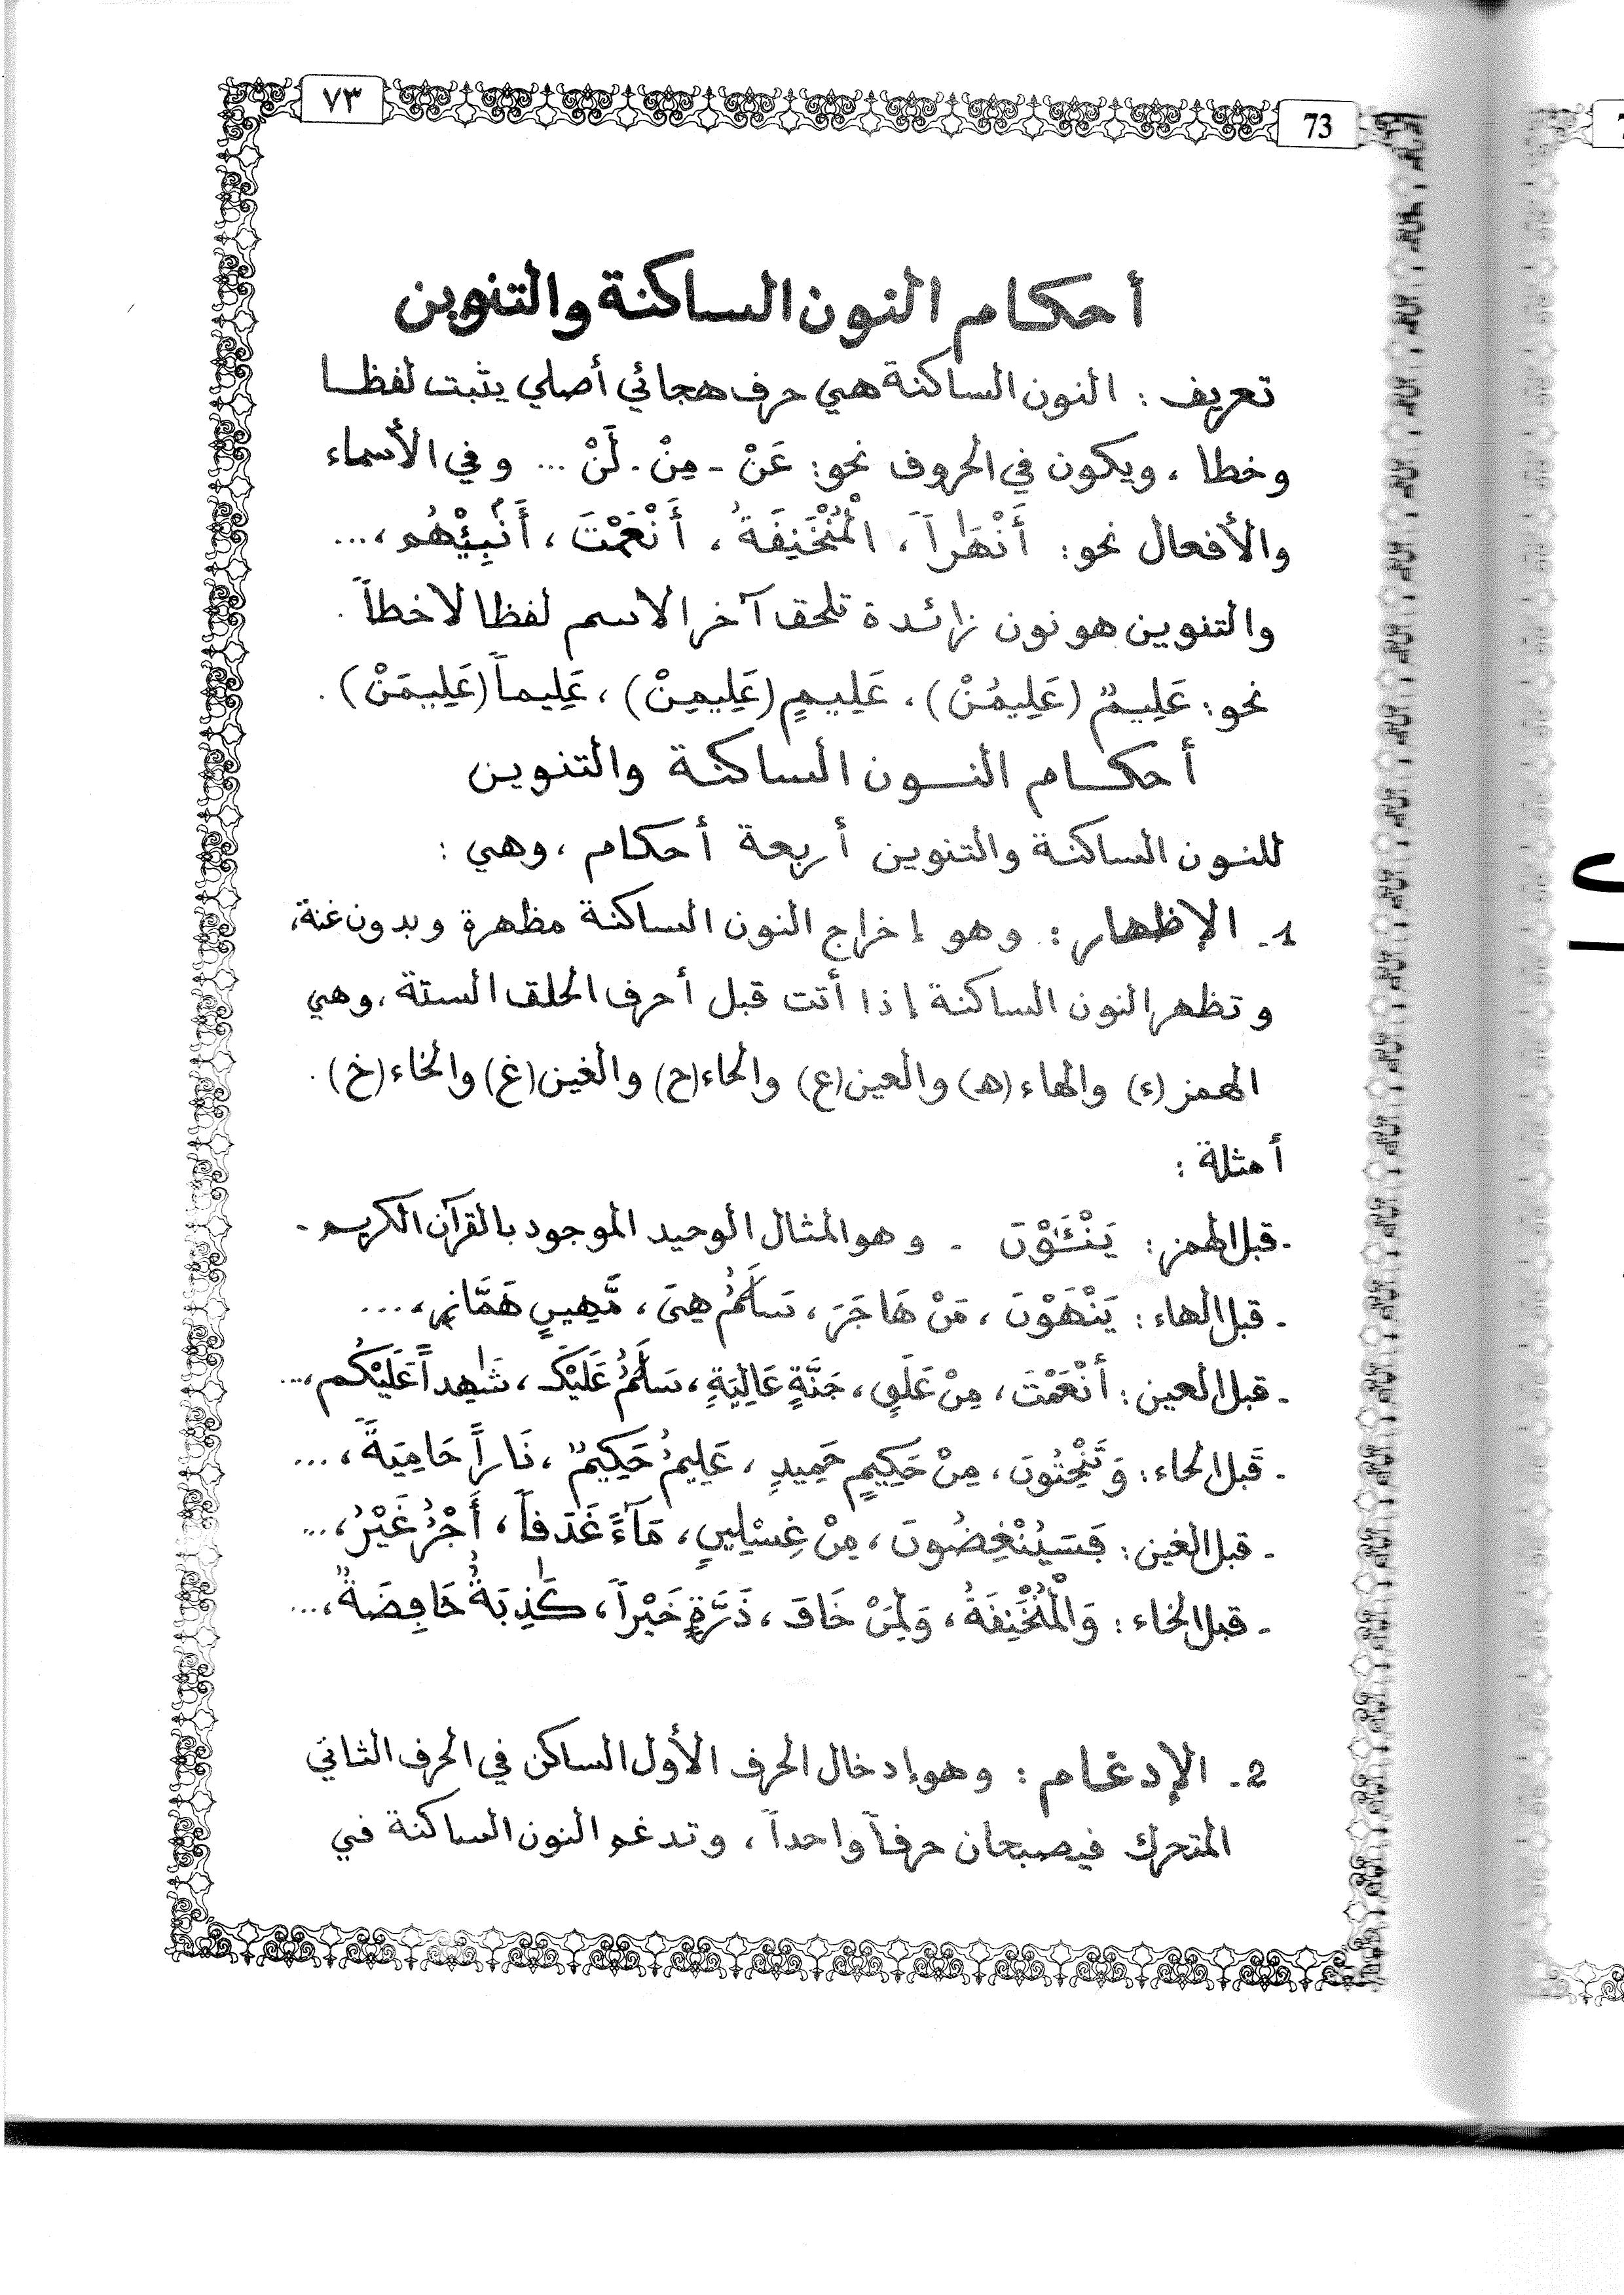 ٧٣
73
أحكام النون الساكنة والتنوين
تعريف : النون الساكنة هي حرف هجائي أصلي يثبت لفظا
وخطا ، ويكون في الحروف نحو: عَنْ - مِنْ - لَنْ ... وفي الأسماء
والأفعال نحو: أَنْهَٰراً ، الْمُنْخَنِقَةُ ، أَنْعَمْتَ ، أَنۢبِئْهُم ،...
والتنوين هو نون زائدة تلحق آخر الاسم لفظا لا خطاً .
نحو: عَلِيمٌ (عَلِيمُنْ) ، عَلِيمٍ (عَلِيمِنْ) ، عَلِيماً (عَلِيمَنْ) .
أحكام النون الساكنة والتنوين
للنون الساكنة والتنوين أربعة أحكام ، وهي :
1- الإظهار : وهو إخراج النون الساكنة مظهرة وبدون غنة،
وتظهر النون الساكنة إذا أتت قبل أحرف الحلق الستة ، وهي
الهمز (ء) والهاء (ه) والعين (ع) والحاء (ح) والغين (غ) والخاء (خ) .
أمثلة :
- قبل الهمز : يَنْـَٔوْنَ - وهو المثال الوحيد الموجود بالقرآن الكريم -
- قبل الهاء : يَنْهَوْنَ ، مَنْ هَاجَرَ ، سَلَٰمٌ هِىَ ، مَّهِينٍ هَمَّازٍ ،...
- قبل العين : أَنْعَمْتَ ، مِنْ عَلَقٍ ، جَنَّةٍ عَالِيَةٍ ، سَلَٰمٌ عَلَيْكَ ، شَٰهِداً عَلَيْكُم ،...
- قبل الحاء : وَتَنْحِتُونَ ، مِنْ حَكِيمٍ حَمِيدٍ ، عَلِيمٌ حَكِيمٌ ، نَاراً حَامِيَةً ، ...
- قبل الغين : فَسَيُنْغِضُونَ ، مِنْ غِسْلِينٍ ، مَآءً غَدَقاً ، أَجْرٌ غَيْرُ ،...
- قبل الخاء : وَالْمُنْخَنِقَةُ ، وَلِمَنْ خَافَ ، ذَرَّةٍ خَيْراً ، كَٰذِبَةٌ خَافِضَةٌ ،...
2- الإدغام : وهو إدخال الحرف الأول الساكن في الحرف الثاني
المتحرك فيصبحان حرفاً واحداً ، وتدغم النون الساكنة في